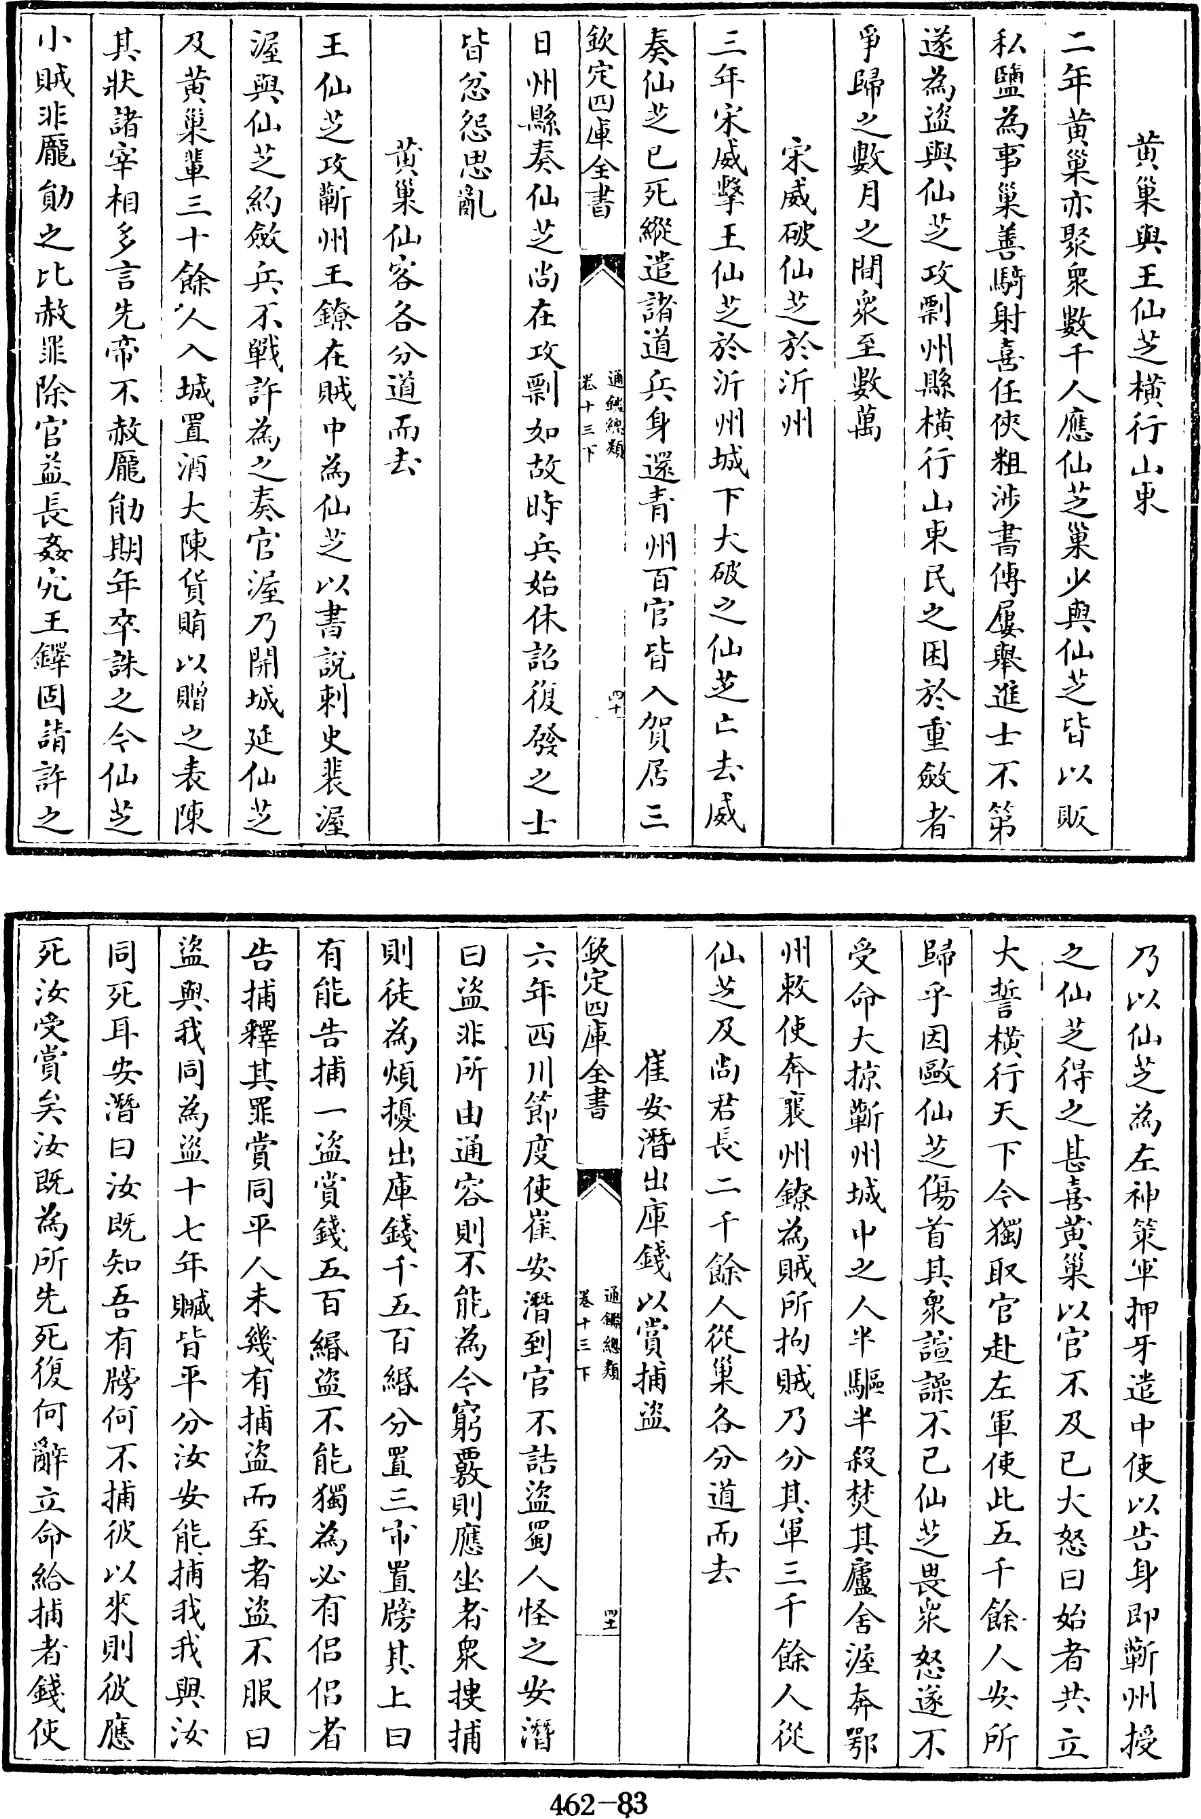 黄巢與王仙芝橫行山東
二年黄巢亦聚衆數千人應仙芝巢少與仙芝皆以販
私鹽為事巢善騎射喜任俠粗涉書傳屢舉進士不第
遂為盜與仙芝攻剽州縣橫行山東民之困於重斂者
爭歸之數月之間衆至數萬
宋威破仙芝於沂州
三年宋威擊王仙芝於沂州城下大破之仙芝亡去威
奏仙芝已死縱遣諸道兵身還青州百官皆入賀居三
欽定四庫全書
通鑑總類
卷十三下
四十
日州縣奏仙芝尚在攻剽如故時兵始休詔復發之士
皆忿怨思亂
黄巢仙客各分道而去
王仙芝攻蘄州王鐐在賊中為仙芝以書說刺史裴渥
渥與仙芝約斂兵不戰許為之奏官渥乃開城延仙芝
及黄巢輩三十餘人入城置酒大陳貨賄以贈之表陳
其狀諸宰相多言先帝不赦龎勛期年卒誅之今仙芝
小賊非龎勛之比赦罪除官益長姦宄王鐸固請許之
乃以仙芝為左神策軍押牙遣中使以告身即蘄州授
之仙芝得之甚喜黄巢以官不及已大怒曰始者共立
大誓橫行天下今獨取官赴左軍使此五千餘人安所
歸乎因毆仙芝傷首其衆諠譟不已仙芝畏衆怒遂不
受命大掠蘄州城中之人半驅半殺焚其廬舍渥奔鄂
州敕使奔襄州鐐為賊所拘賊乃分其軍三千餘人從
仙芝及尚君長二千餘人從巢各分道而去
崔安潛出庫錢以賞捕盜
欽定四庫全書
通鑑總類
卷十三下
四十一
六年西川節度使崔安潛到官不詰盜蜀人怪之安潛
曰盜非所由通容則不能為今窮覈則應坐者衆搜捕
則徒為煩擾出庫錢千五百緡分置三市置牓其上曰
有能告捕一盜賞錢五百緡盜不能獨為必有侣侣者
告捕釋其罪賞同平人未幾有捕盜而至者盜不服曰
盜與我同為盜十七年贓皆平分汝安能捕我我與汝
同死耳安潛曰汝既知吾有牓何不捕彼以來則彼應
死汝受賞矣汝既為所先死復何辭立命給捕者錢使
462-83